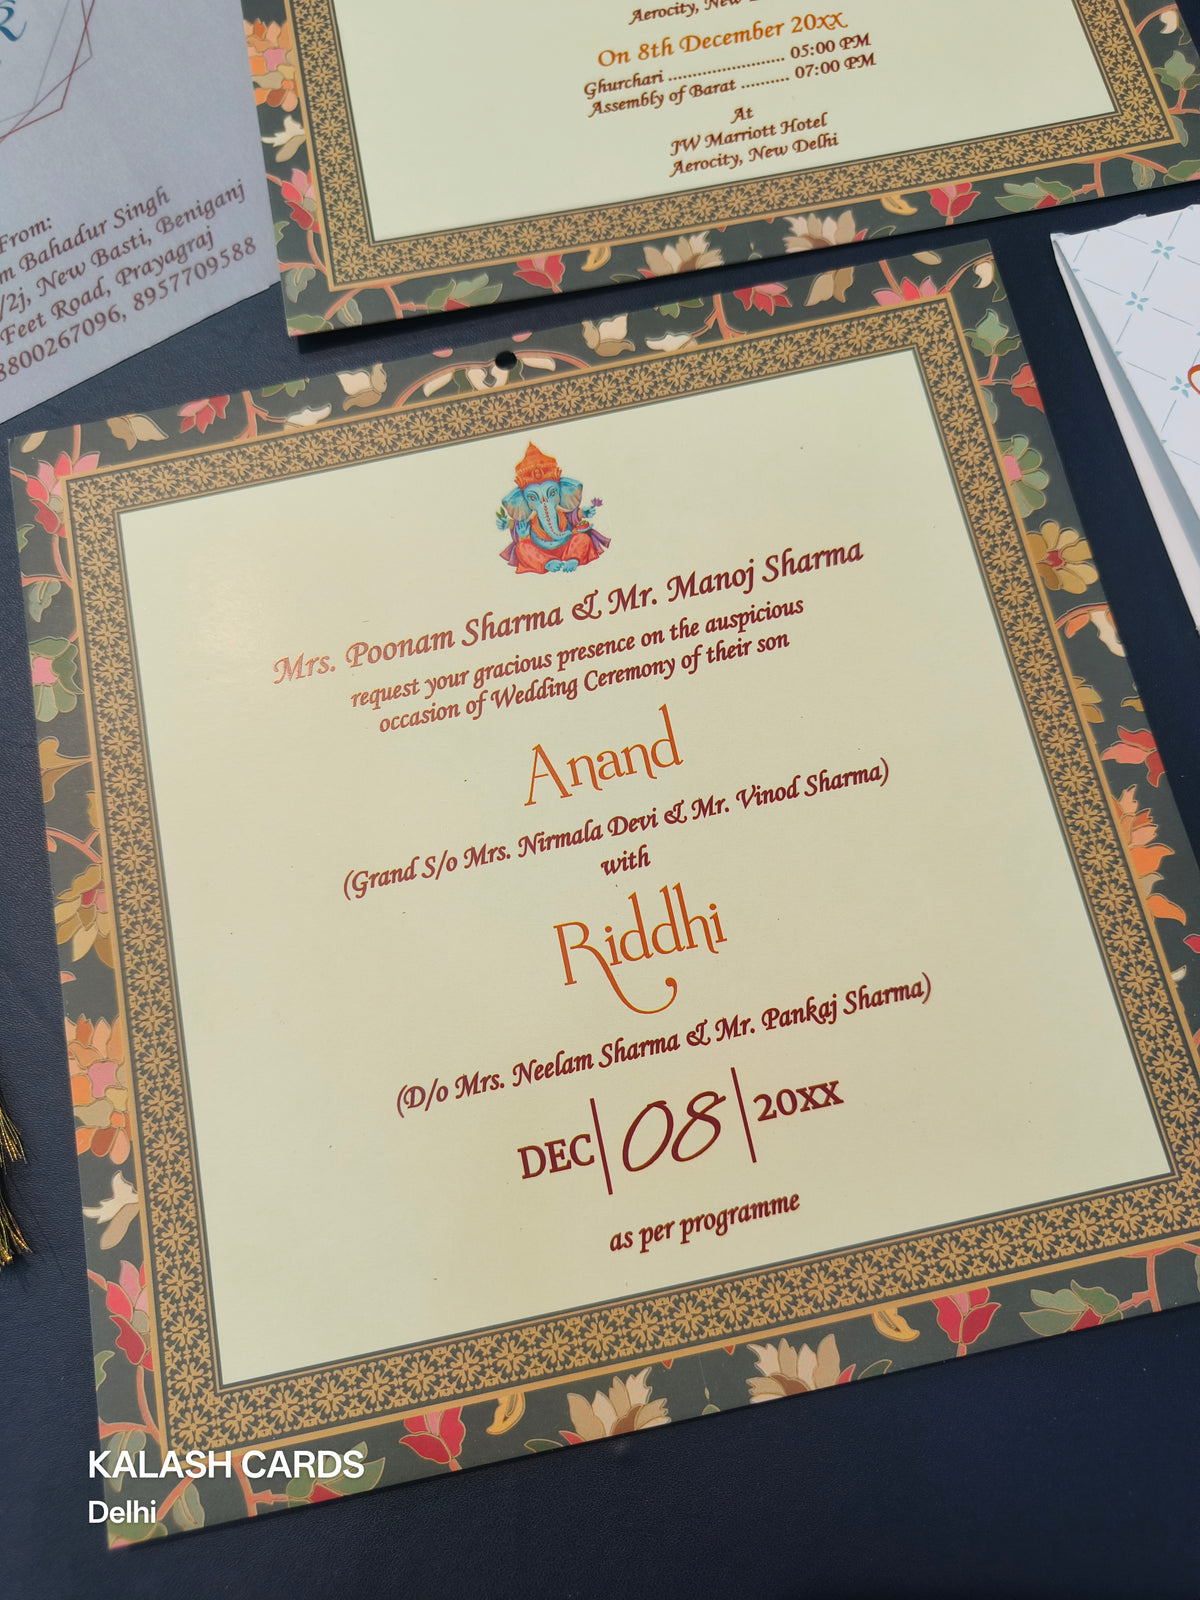 Aerocity, New
On 8th December 20xx
Ghurchari ........................ 05:00 PM
Assembly of Barat .......... 07:00 PM
At
JW Marriott Hotel
Aerocity, New Delhi
From:
Bahadur Singh
/2j, New Basti, Beniganj
Feet Road, Prayagraj
8800267096, 8957709588
Mrs. Poonam Sharma & Mr. Manoj Sharma
request your gracious presence on the auspicious
occasion of Wedding Ceremony of their son
Anand
(Grand S/o Mrs. Nirmala Devi & Mr. Vinod Sharma)
with
Riddhi
(D/o Mrs. Neelam Sharma & Mr. Pankaj Sharma)
DEC 08 20XX
as per programme
KALASH CARDS
Delhi